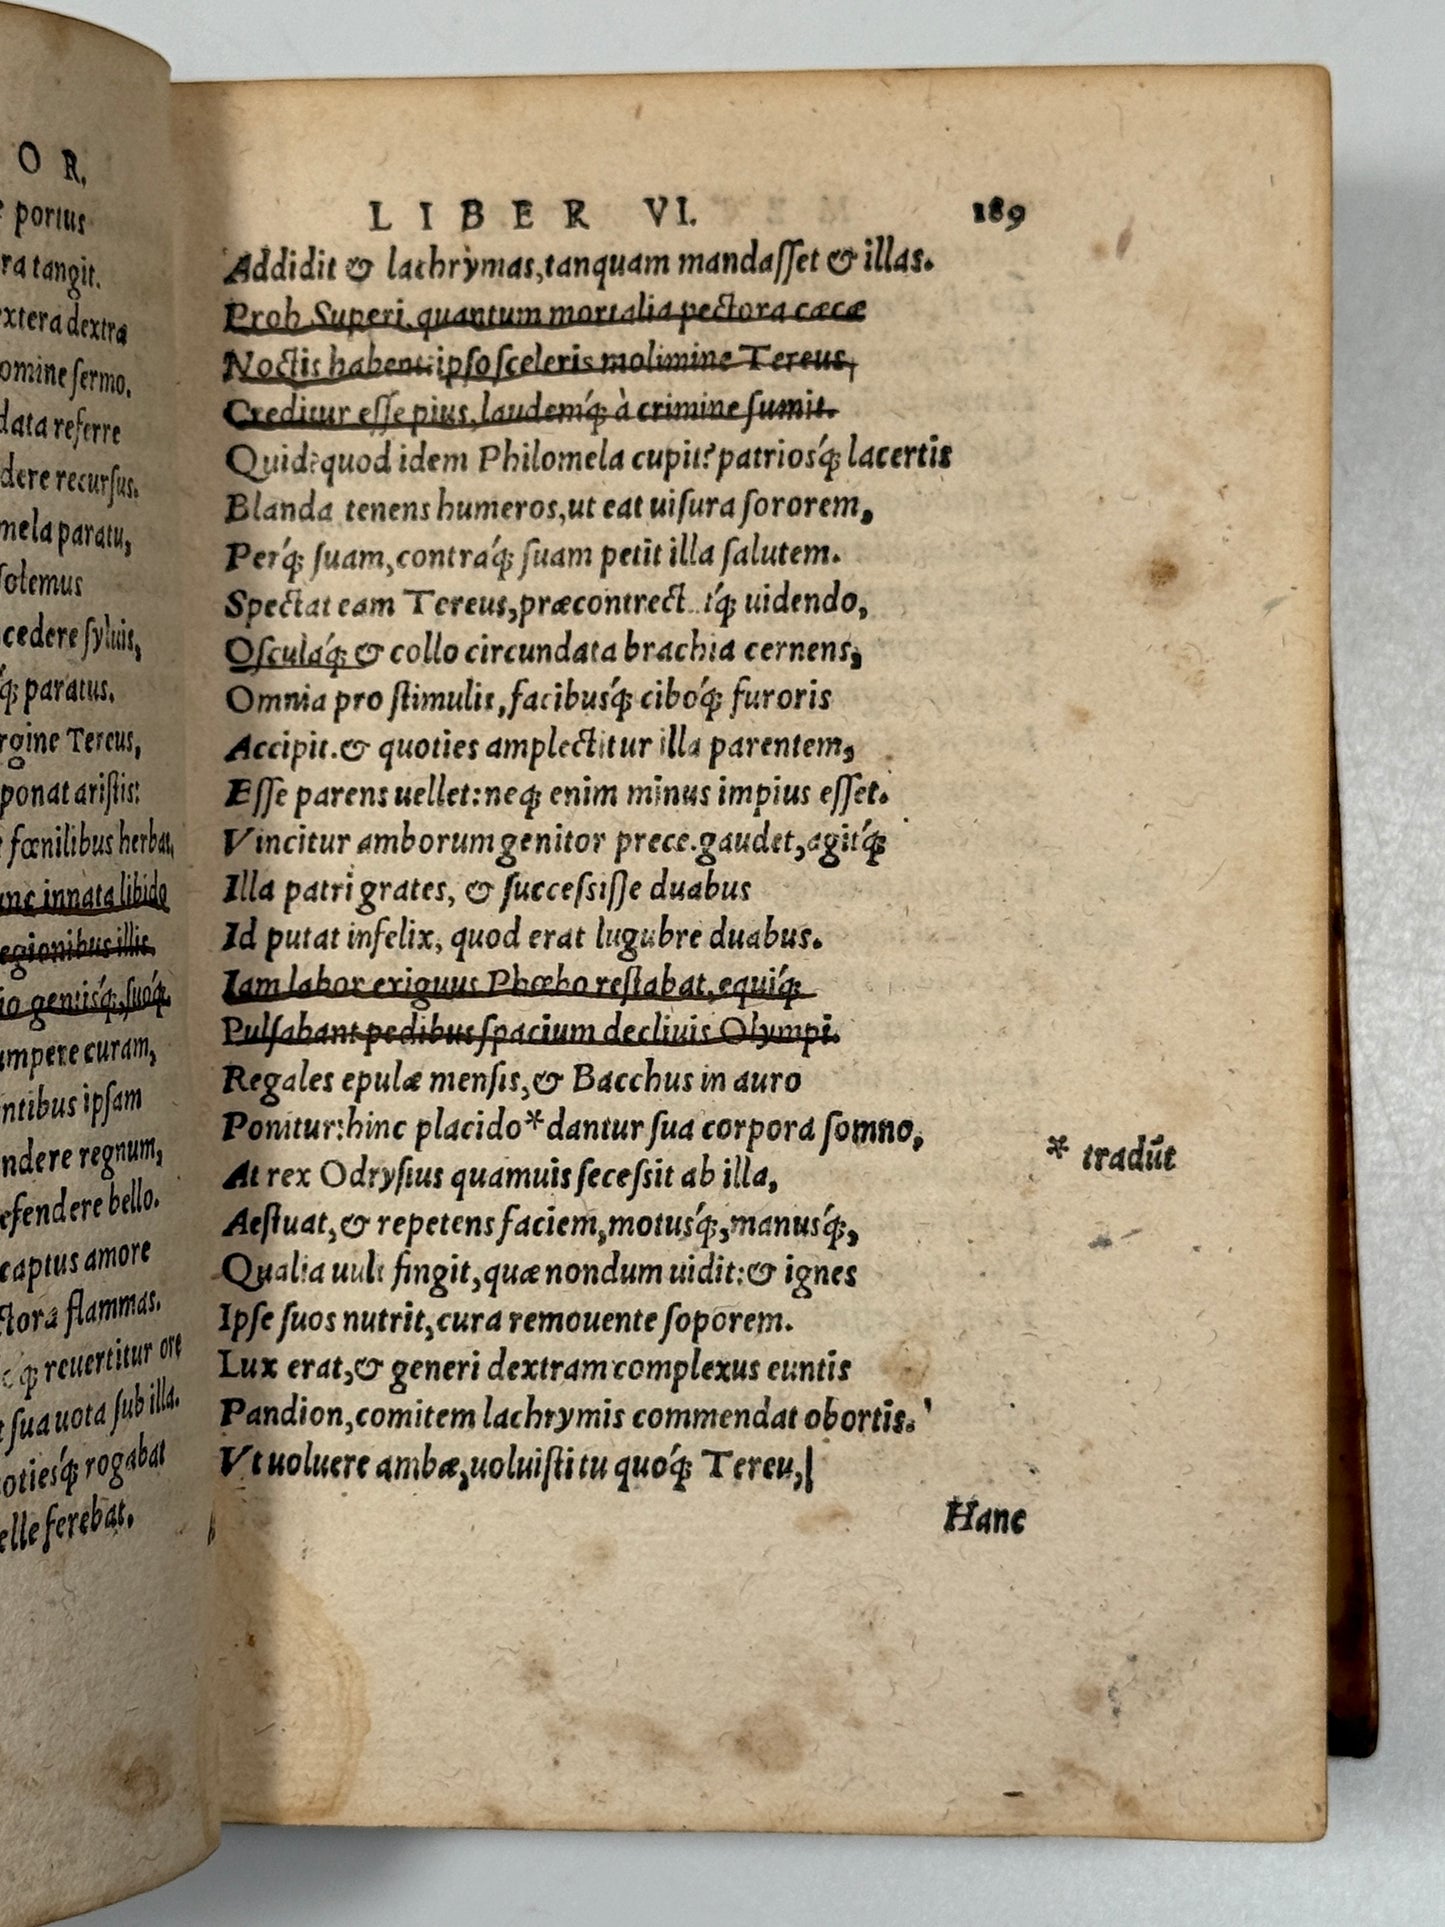 OR.
portus
ra tangit.
extera dextra
omine ſermo.
data referre
dere recurſus.
mela paratu,
ſolemus
cedere ſyluis,
q́; paratus.
rgine Tereus,
ponat ariſtis:
fœnilibus herbas,
unc innata libido
egionibus illis.
io gentisq́;, suoq́;.
umpere curam,
ntibus ipſam
ndere regnum,
efendere bello.
captus amore
ctora flammas.
q́; reuertitur ore
ſua uota ſub illa.
otiesq́; rogabat
elle ferebat.
LIBER VI. 189
Addidit & lachrymas, tanquam mandaſſet & illas.
Proh Superi, quantum mortalia pectora cæcæ
Noctis habent: ipſo ſceleris molimine Tereus,
Creditur eſſe pius, laudemq́; à crimine ſumit.
Quid? quod idem Philomela cupit? patriosq́; lacertis
Blanda tenens humeros, ut eat uiſura ſororem,
Perq́; ſuam, contraq́; ſuam petit illa ſalutem.
Spectat eam Tereus, præcontrect tq́; uidendo,
Oſculaq́; & collo circundata brachia cernens,
Omnia pro ſtimulis, facibusq́; ciboq́; furoris
Accipit. & quoties amplectitur illa parentem,
Eſſe parens uellet: neq; enim minus impius eſſet.
Vincitur amborum genitor prece. gaudet, agitq́;
Illa patri grates, & ſucceſsiſſe duabus
Id putat infelix, quod erat lugubre duabus.
Iam labor exiguus Phœbo reſtabat, equiq́;
Pulſabant pedibus ſpacium decliuis Olympi.
Regales epulæ menſis, & Bacchus in auro
Ponitur: hinc placido * dantur ſua corpora ſomno,
* tradūt
At rex Odryſius quamuis ſeceſsit ab illa,
Aeſtuat, & repetens faciem, motusq́;, manusq́;,
Qualia uult fingit, quæ nondum uidit: & ignes
Ipſe ſuos nutrit, cura remouente ſoporem.
Lux erat, & generi dextram complexus euntis
Pandion, comitem lachrymis commendat obortis.
Vt uoluere ambæ, uoluiſti tu quoq́; Tereu,
Hanc